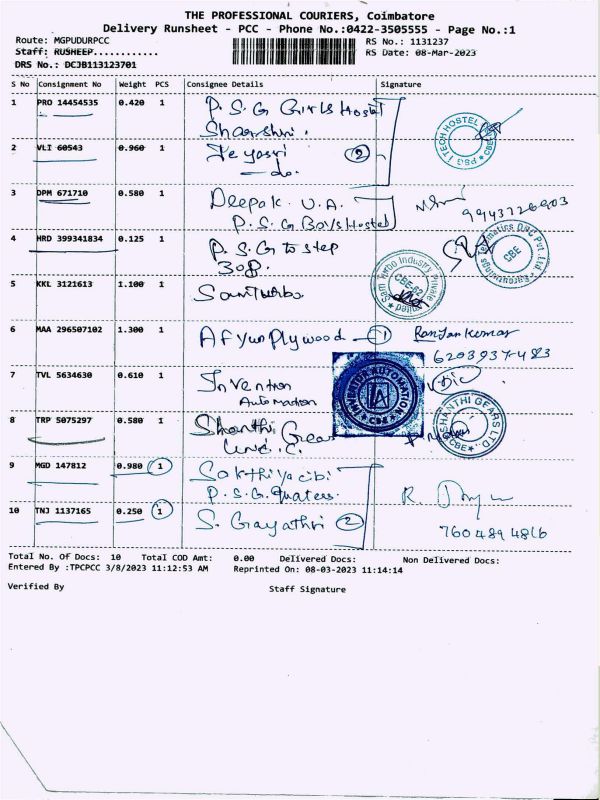 THE PROFESSIONAL COURIERS, Coimbatore
Delivery Runsheet - PCC - Phone No.:0422-3505555 - Page No.:1
Route: MGPUDURPCC
RS No.: 1131237
Staff: RUSHEEP............
RS Date: 08-Mar-2023
DRS No.: DCJB113123701
S No Consignment No Weight PCS Consignee Details Signature
1 PRO 14454535 0.420 1 P.S.G Girls Hostel
PSG I TECH HOSTEL CBE
2 VLI 60543 0.960 1 2
do.
3 DPM 671710 0.580 1 Deepak U.A.
P.S.G Boys Hostel
9943726903
4 HRD 399341834 0.125 1 P.S.G to step
308.
CBE
5 KKL 3121613 1.100 1 Samturbo
Sam Turbo Industry Private Limited CBE-62
6 MAA 296507102 1.300 1 Afyun Plywood 1 Ranjan Kumar
7 TVL 5634630 0.610 1 Invention
Automation
INVENTOR AUTOMATION IA CBE
8 TRP 5075297 0.580 1 Shanthi Gear
Unit. C.
SHANTHI GEARS LTD CBE
9 MGD 147812 0.980 1
P.S.G. Quaters.
10 TNJ 1137165 0.250 1 S. Gayathri 2
760489 4816
Total No. Of Docs: 10 Total COD Amt: 0.00 Delivered Docs: Non Delivered Docs:
Entered By :TPCPCC 3/8/2023 11:12:53 AM Reprinted On: 08-03-2023 11:14:14
Verified By Staff Signature